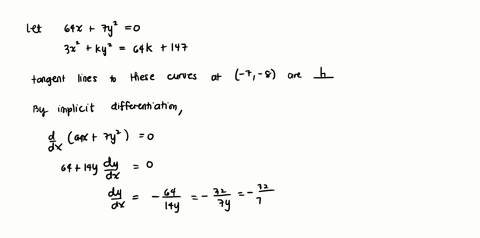 Let 64x + 7y² = 0
3x² + ky² = 64k + 147
tangent lines to these curves at (-7, -8) are h
By implicit differentiation,
d/dx (64x + 7y²) = 0
64 + 14y dy/dx = 0
dy/dx = - 64/14y = - 32/7y = - 32/7